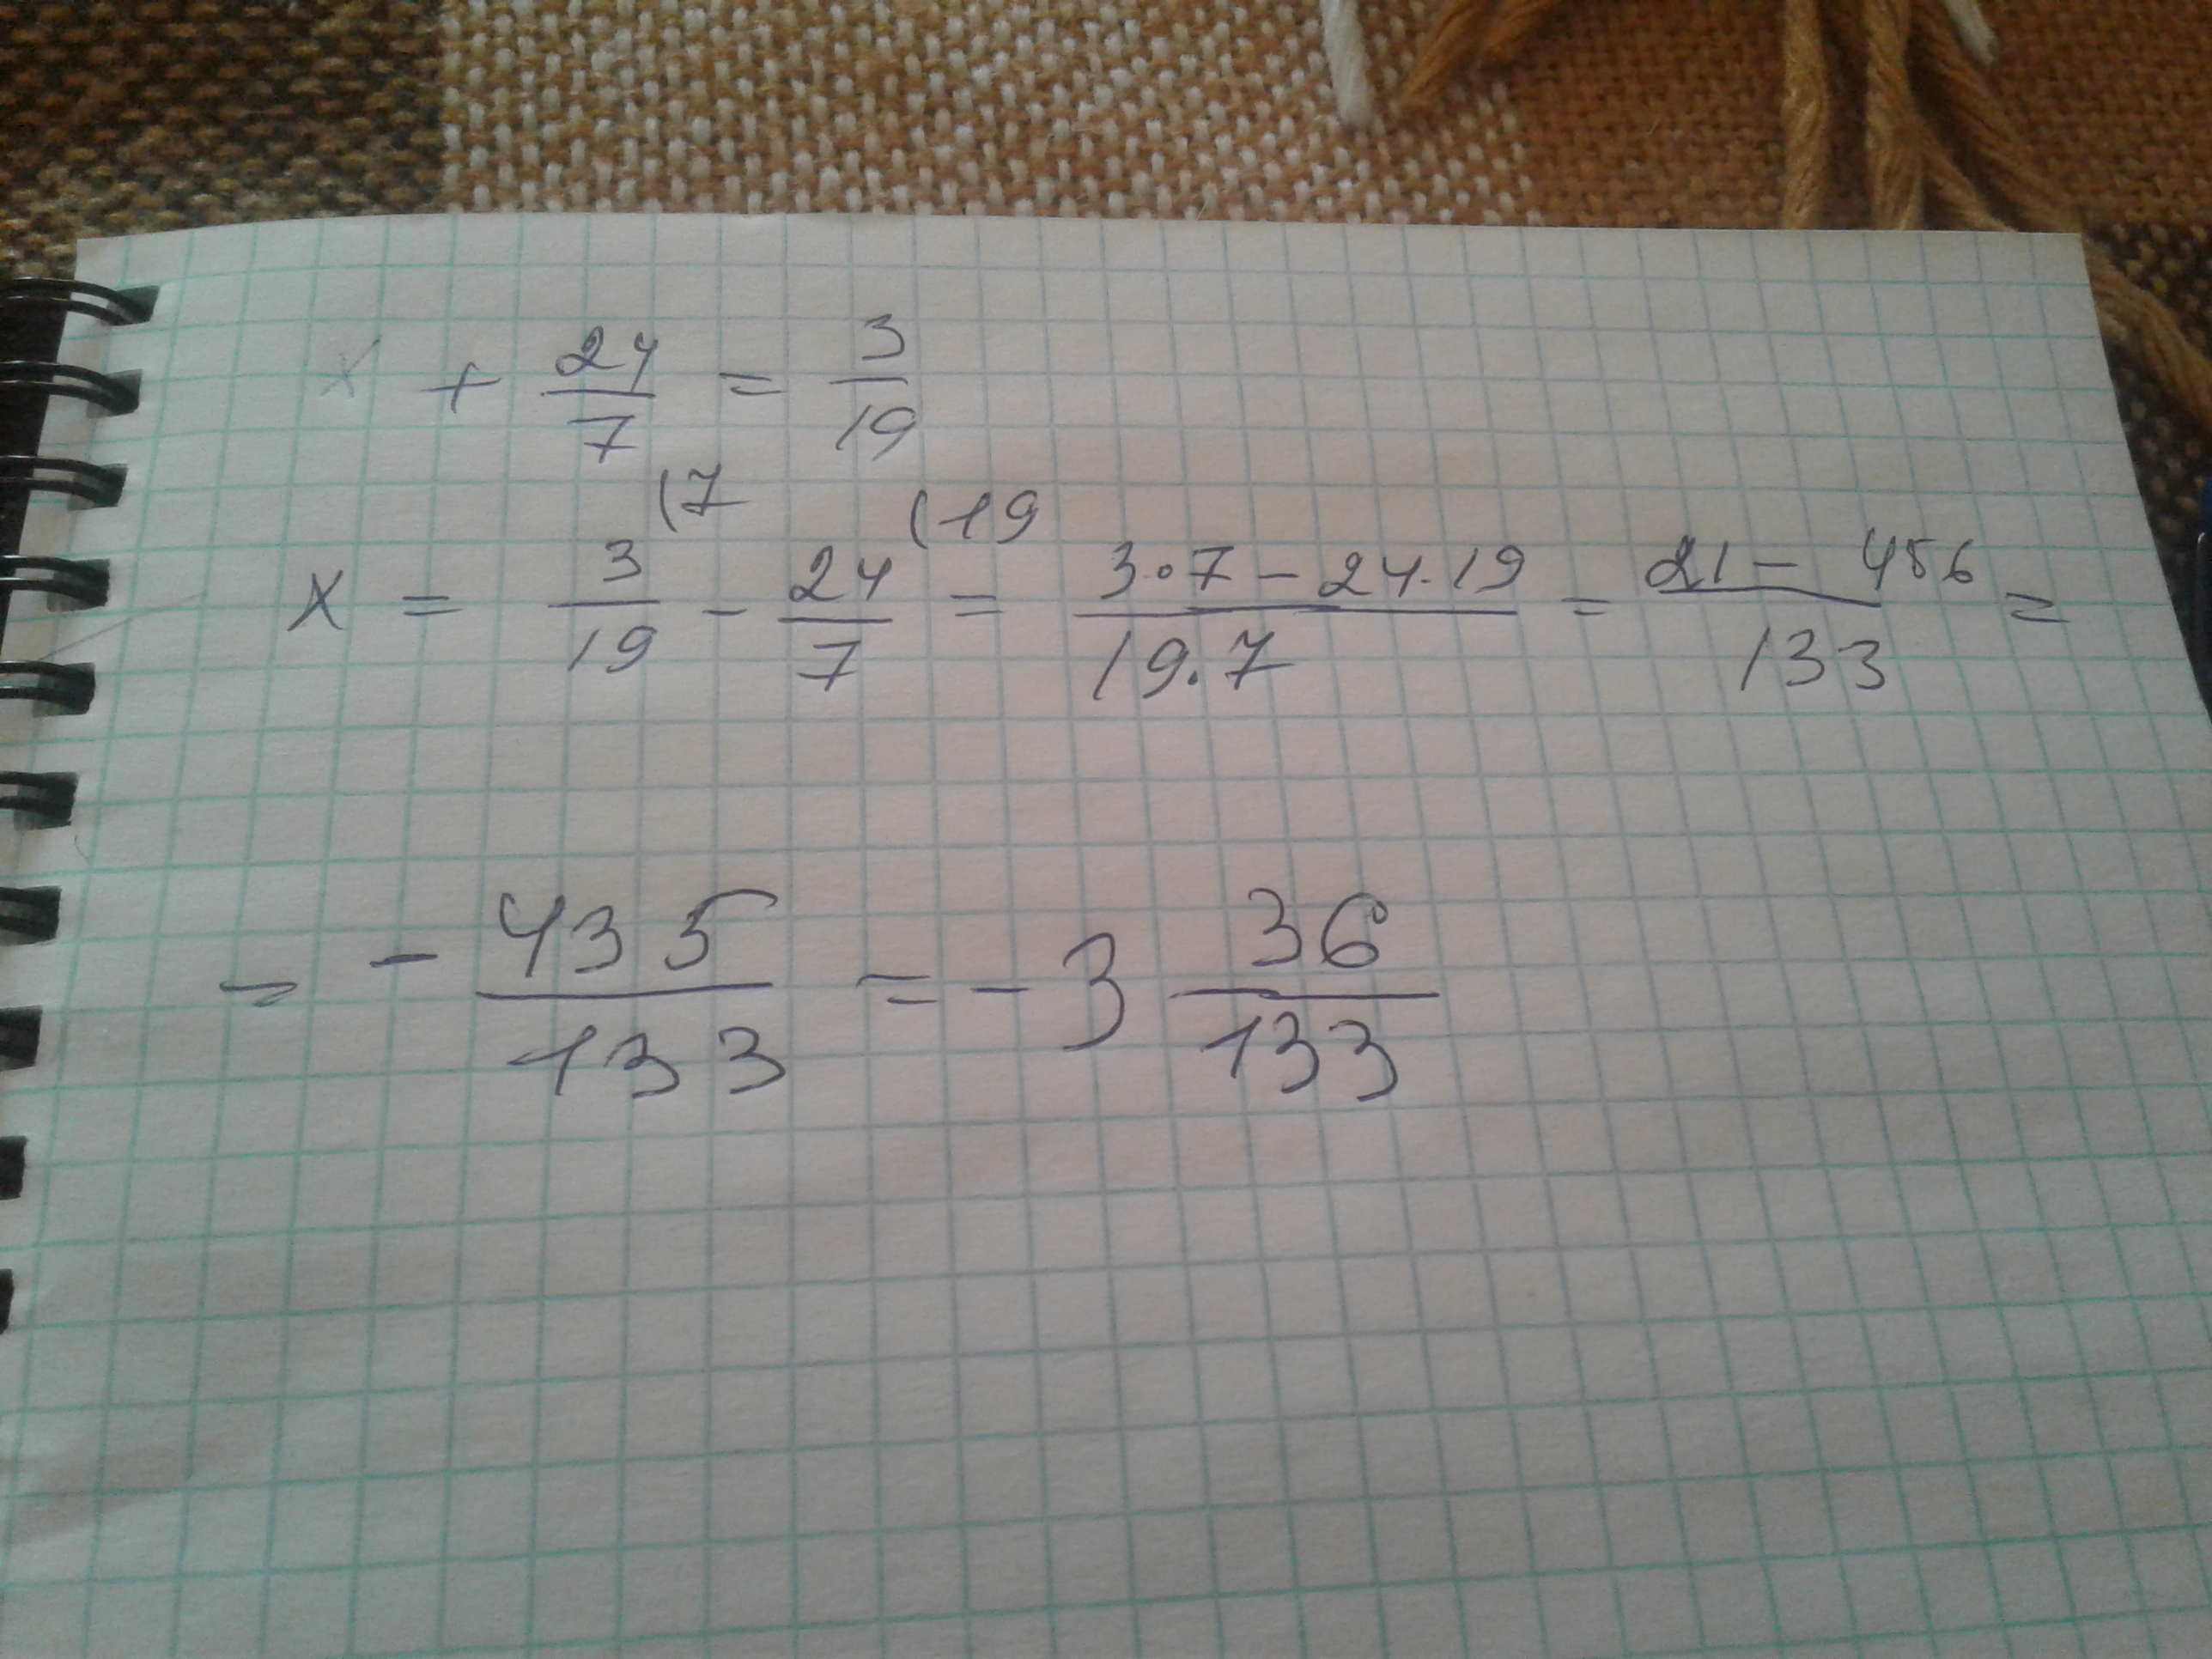 x + 24/7 = 3/19
x = 3/19 (7 - 24/7 (19 = 3·7-24·19/19·7 = 21-456/133 =
= - 435/133 = -3 36/133